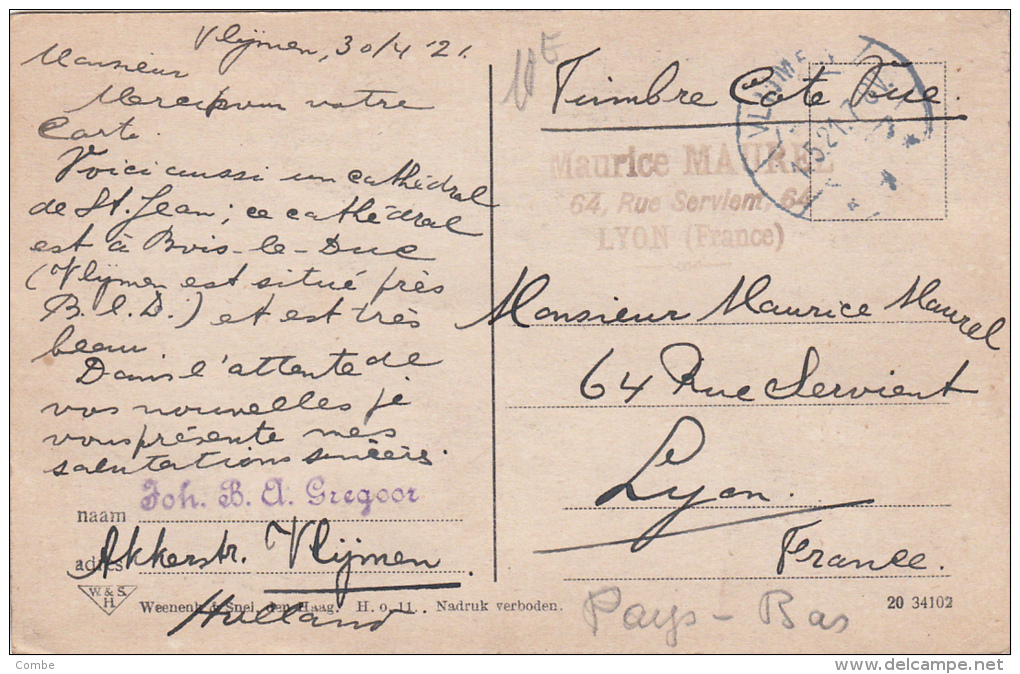 Vlijmen, 30/4 '21.
Monsieur
Merci pour votre
Carte.
Voici aussi un cathédral
de St. Jean; ce cathédral
est à Bois-le-Duc
(Vlijmen est situé près
B. l. D.) et est très
beau.
Dans l'attente de
vos nouvelles je
vous présente mes
salutations sincères.
naam Joh. B. A. Gregoor
adres Akkerstr. Vlijmen
Holland
W. & S.
H
Weenenk & Snel, den Haag. H. o. 11. Nadruk verboden.
10 F
Timbre Côte Vue.
VLIJMEN
Maurice MAUREL
64, Rue Servient, 64
LYON (France)
Monsieur Maurice Maurel
64 Rue Servient
Lyon.
France.
Pays-Bas
20 34102
Combe
http://www.delcampe.net